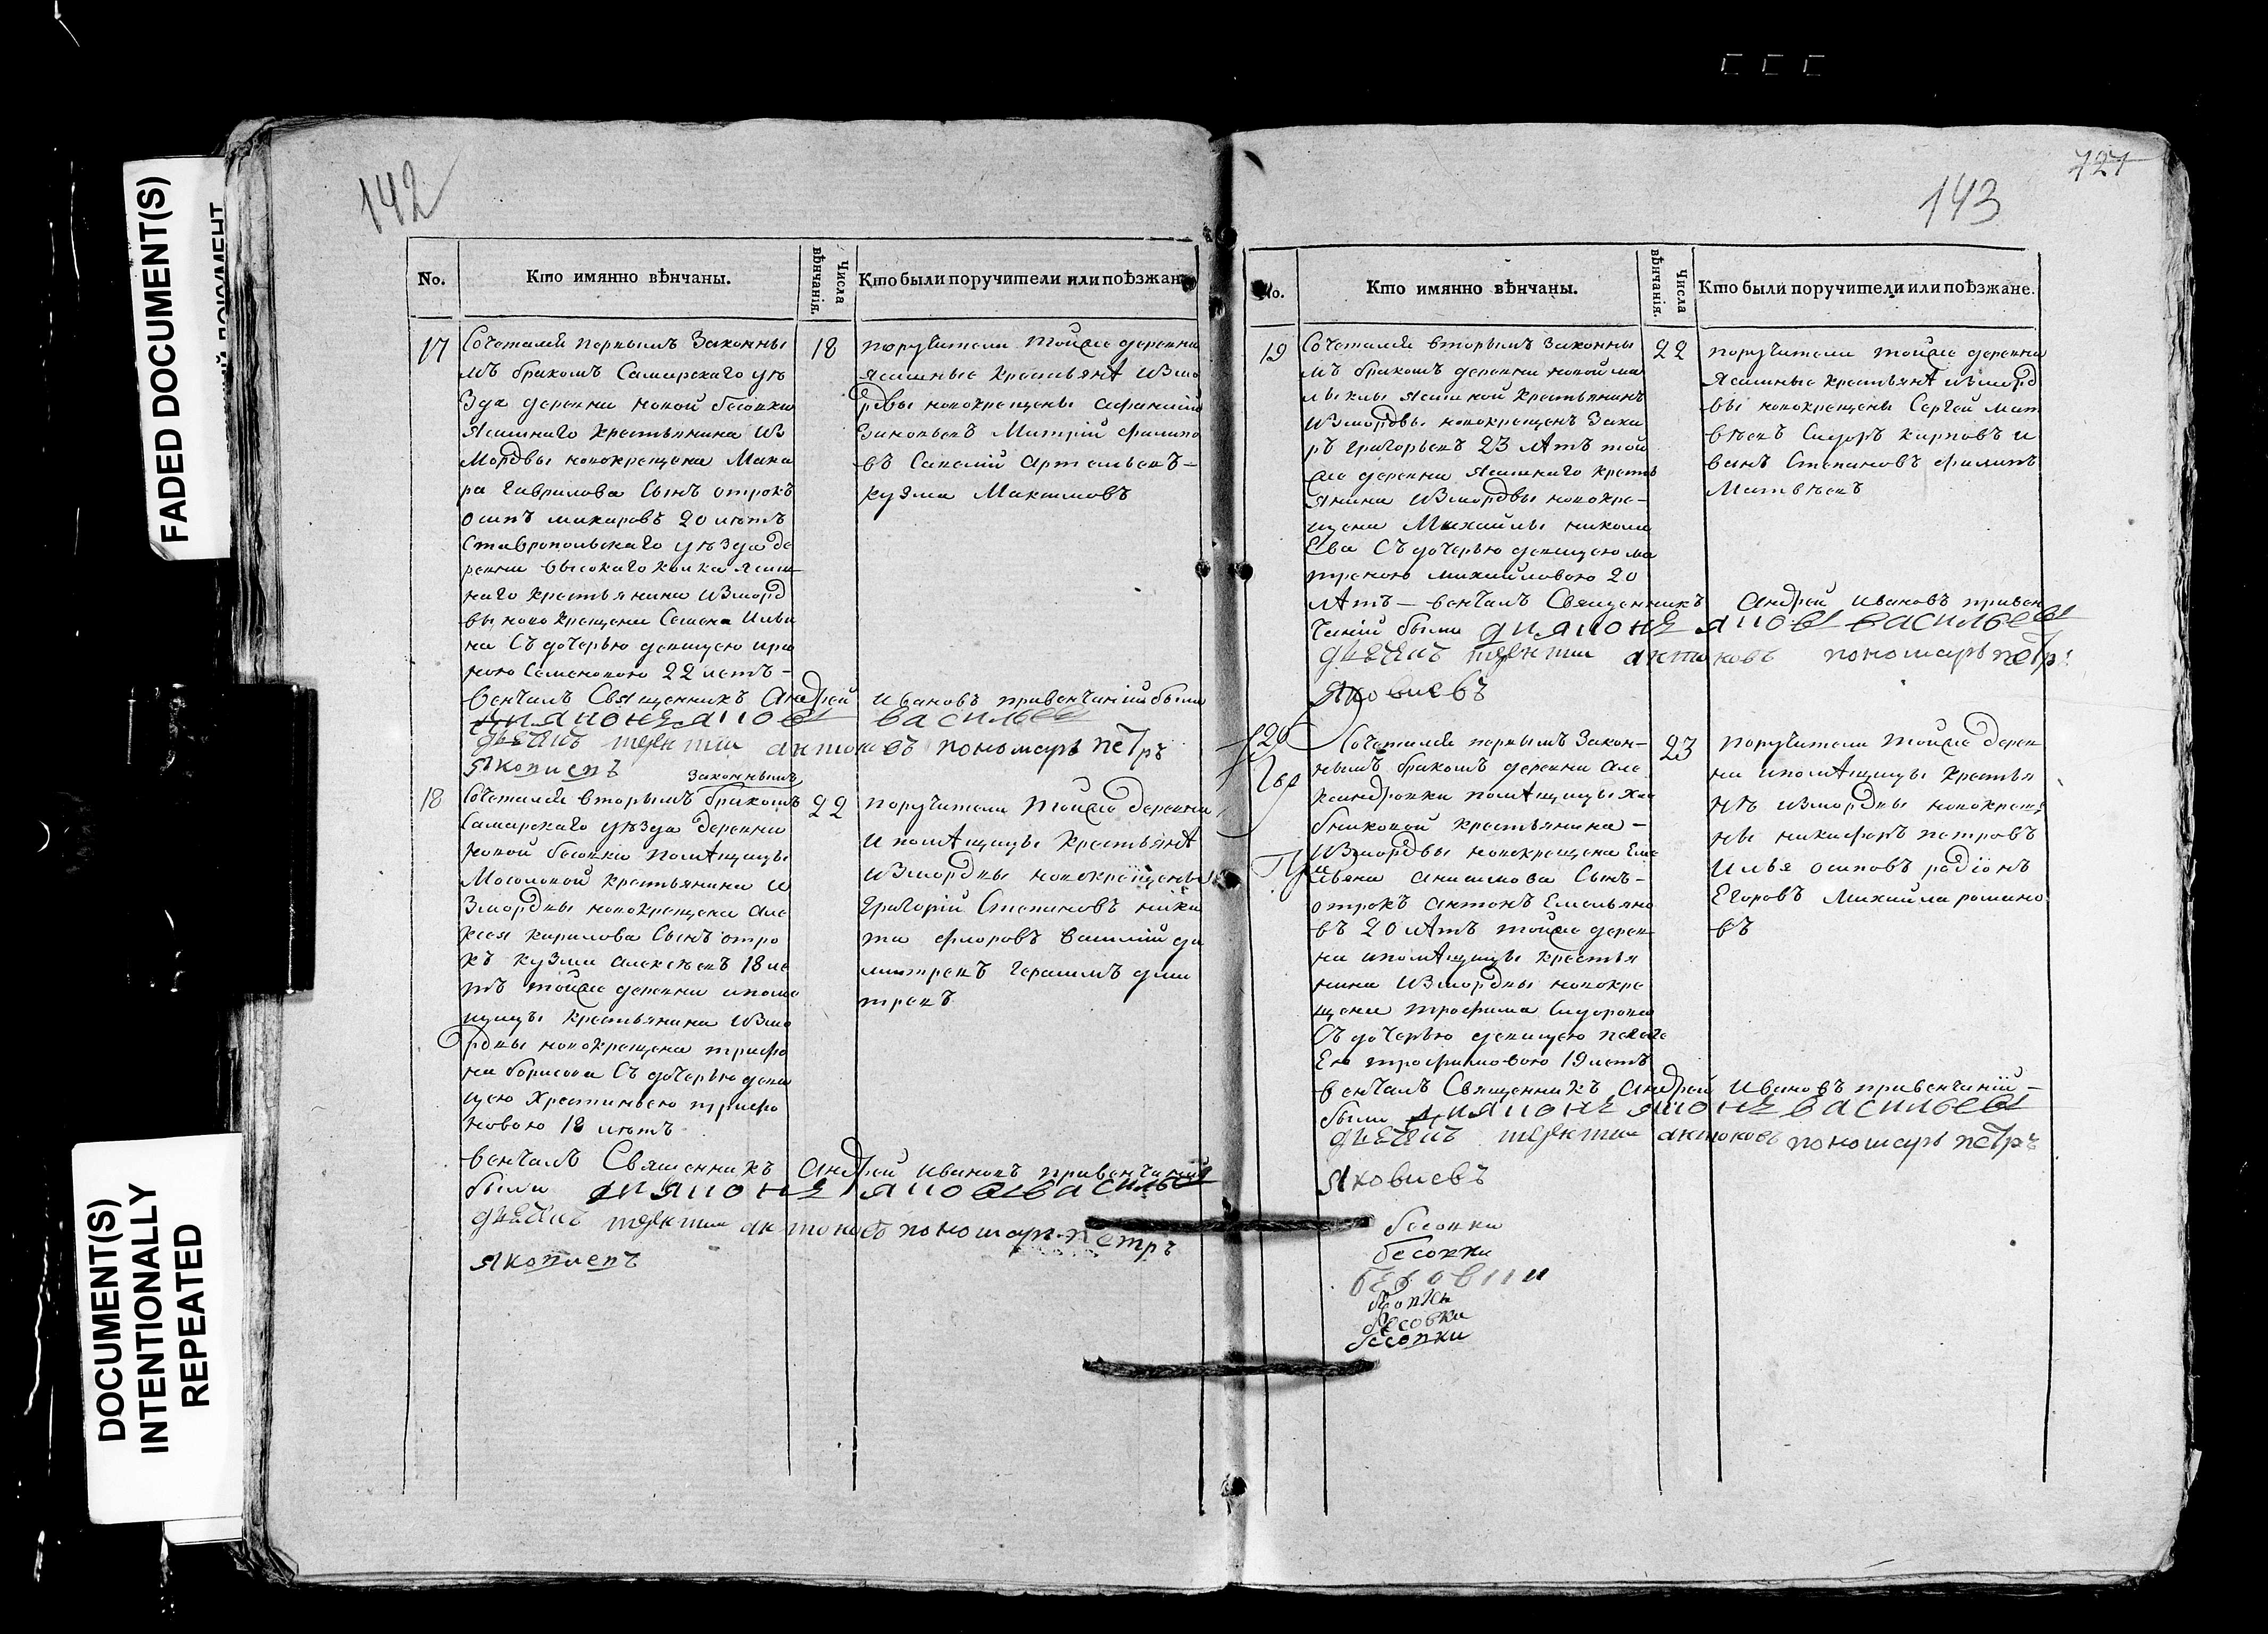 FADED DOCUMENT(S)
DOCUMENT(S)
INTENTIONALLY
REPEATED
142
No.
Кто имянно вѣнчаны.
Числа вѣнчанія.
Кто были поручители или поѣзжан
17
Сочетался первымъ Законны
мъ бракомъ Самарскаго уѣ
Зда деревни новой бесовки
Ясашнаго крестьянина Из
Мордвы новокрещена Мака
ра Гаврилова Сынъ отрокъ
осипъ макаровъ 20 лѣтъ
Ставропольскаго уѣзда де
ревни высокаго колка Ясаш
наго крестьянина Изморд
вы новокрещена Семена Ильи
на Съ дочерью девицею ири
ною Семеновою 22 летъ -
венчалъ Священникъ Андрей Ивановъ привенчаніи были
васильевъ
антоновъ пономарь петръ
Яковлевъ
18
поручители тойже деревни
Ясашные крестьянѣ Измо
рдвы новокрещены афанасій
Зиновьевъ Митрій филипо
въ Савелій Артемьевъ -
кузма Максимовъ
18
Законнымъ
Сочетался вторымъ бракомъ
Самарскаго уѣзда деревни
новой бесовки помѣщицы
Мосоловой крестьянина И
Змордвы новокрещена але
ксея кирилова Сынъ отро
къ кузма алексѣевъ 18 ле
тъ тойже деревни ипоме
щицы крестьянина Измо
рдвы новокрещена трифо
на борисова Съ дочерью деви
цею Хрестиньею трифо
новою 18 лѣтъ
венчалъ Священникъ Андрей Ивановъ привенчаніи
были
антоновъ пономарь петръ
Яковлевъ
22
поручители тойже деревни
И помѣщицы крестьянѣ
Измордвы новокрещены
Григорій Степановъ ники
та флоровъ василій дм
митревъ Герасимъ дми
тревъ
143
No.
Кто имянно вѣнчаны.
Числа вѣнчанія.
Кто были поручители или поѣзжане.
19
Сочетался вторымъ Законны
мъ бракомъ деревни новой ма
лыклы Ясашной крестьянинъ
Измордвы новокрещенъ Заха
ръ Григорьевъ 23 лѣтъ той
же деревни Ясашнаго крестъ
янина Измордвы новокре-
щена Михайлы никола
Ева Съ дочерью девицею ма
треною михайловою 20
лѣтъ — венчалъ Священникъ Андрей Ивановъ привен
чаніи были
антоновъ пономарь петръ
Яковлевъ
22
поручители тойже деревни
Ясашные крестьянѣ изморд
вы новокрещены Сергей Мат
вѣевъ Сидоръ карповъ и
ванъ Степановъ филипъ
Матвѣевъ
20
Сочетался первымъ Закон-
нымъ бракомъ деревни але
ксандровки помѣщицы
крестьянина -
Измордвы новокрещена Еме
льяна анисимова Сынъ -
отрокъ антонъ Емельяно
въ 20 лѣтъ тойже дерев
ни ипомѣщицы крестья
нина Измордвы новокре
щена трофима Сидорова
Съ дочерью девицею пелаге
Ею трофимовою 19 летъ
венчалъ Священникъ Андрей Ивановъ привенчаніи -
были
антоновъ пономарь петръ
Яковлевъ
23
поручители тойже дерев
ни ипомѣщицы крестья
нѣ измордвы новокреще
ны никифоръ петровъ
Илья осиповъ радіонъ
Егоровъ Михайла романо
въ
бесовки
бесовки
бесовки
бесовки